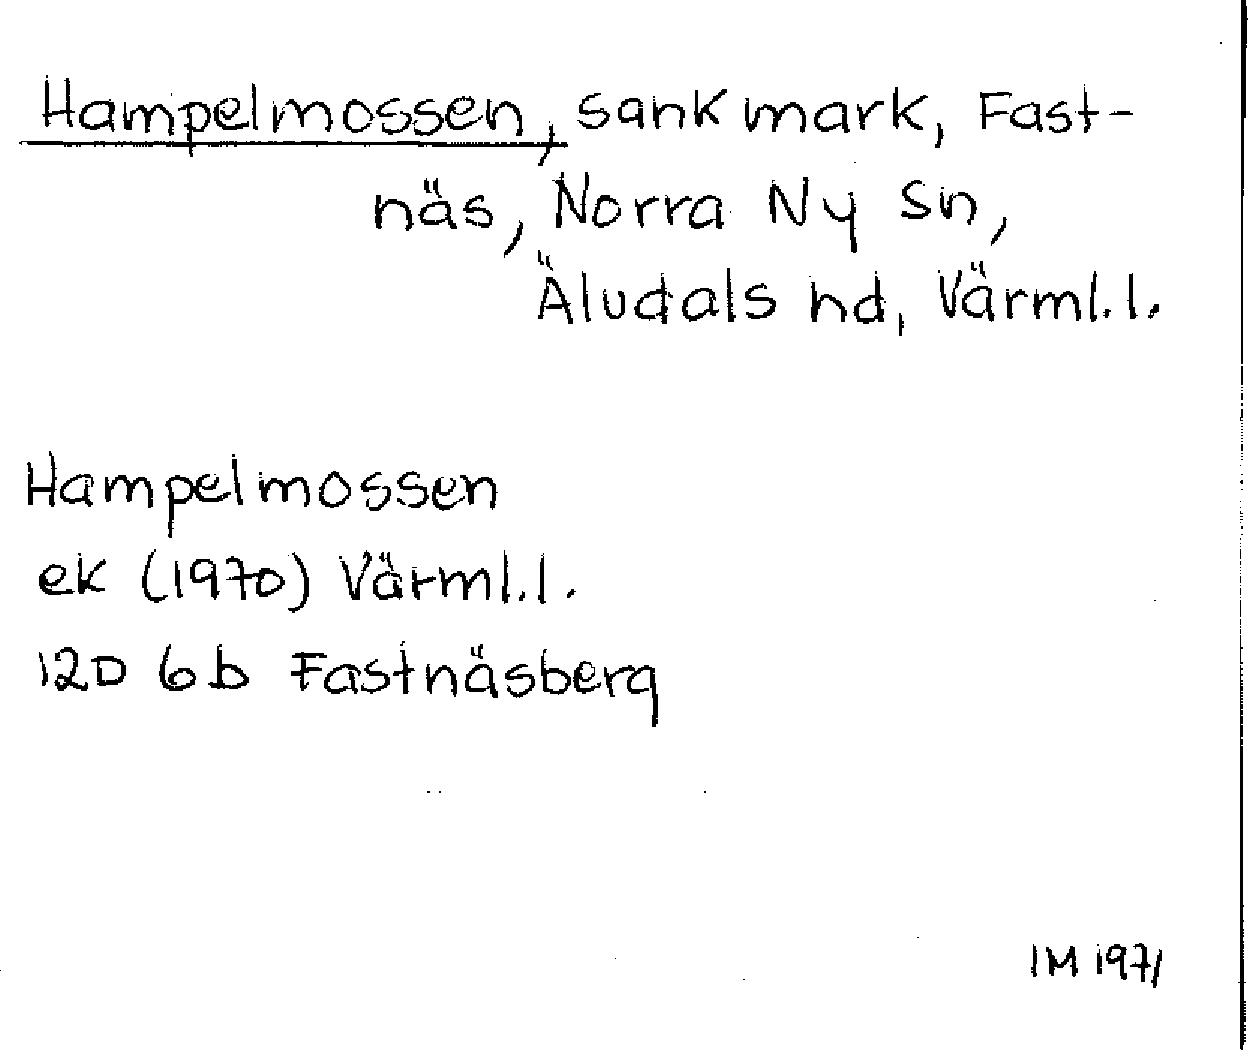 Hampelmossen, sank mark, Fast-
näs, Norra Ny Sn,
Äludals hd, Värml.l.
Hampelmossen
ek (1970) Värml.l.
12D 6b Fastnäsberg
IM 1971